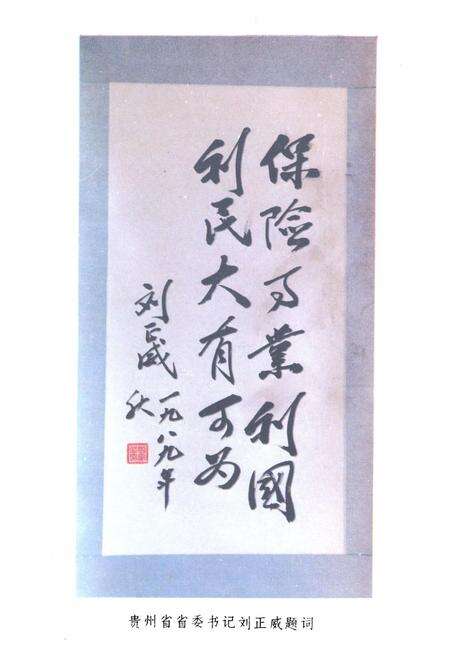 保險事業利國
利民大有可为
刘正威
一九八九年
秋
贵州省省委书记刘正威题词